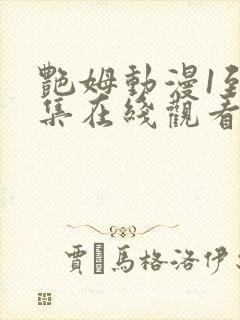 艷姆動漫1至
集在綫觀看
賈·馬格洛伊